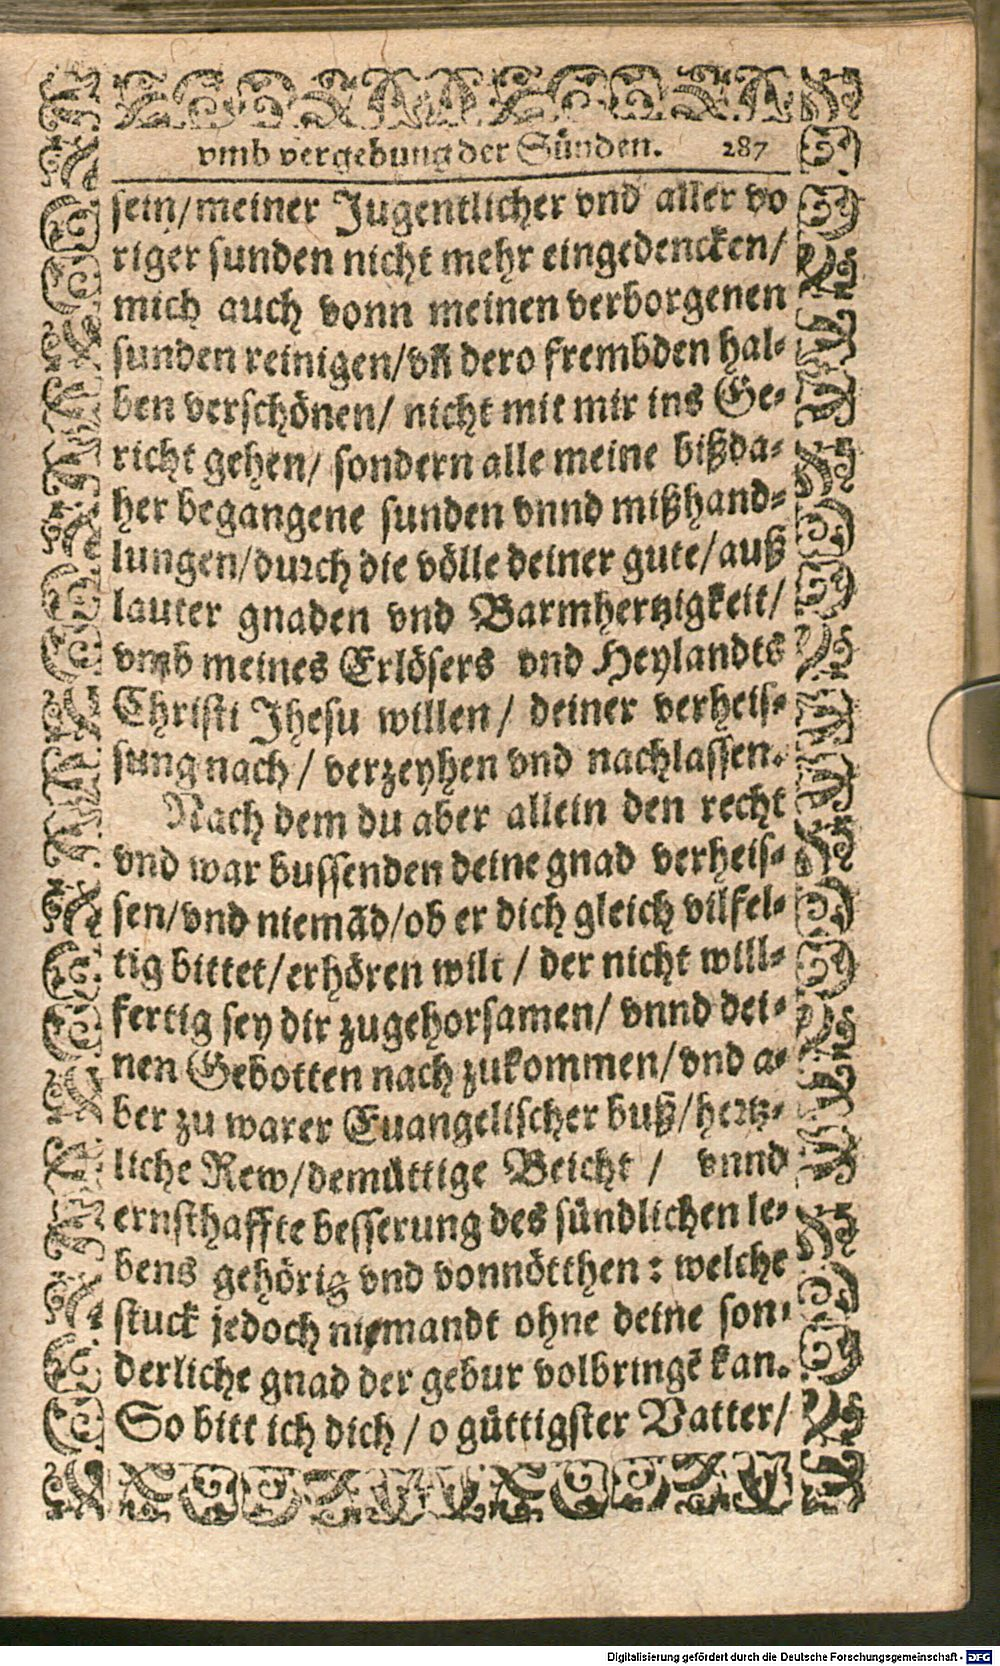 vmb vergebung der Sünden. 287
sein/meiner Jugentlicher vnd aller vo
riger sunden nicht mehr eingedencken/
mich auch vonn meinen verborgenen
sunden reinigen/vñ dero frembden hal-
ben verschönen/ nicht mit mir ins Ge-
richt gehen/ sondern alle meine bißda-
her begangene sunden vnnd mißhand-
lungen/durch die völle deiner gute/auß
lauter gnaden vnd Barmhertzigkeit/
vmb meines Erlösers vnd Heylandts
Christi Jhesu willen/ deiner verheis-
sung nach/ verzeyhen vnd nachlassen.
Nach dem du aber allein den recht
vnd war bussenden deine gnad verheis-
sen/vnd niemãd/ob er dich gleich vilfel-
tig bittet/erhören wilt/ der nicht will-
fertig sey dir zugehorsamen/ vnnd dei-
nen Gebotten nach zukommen/vnd a-
ber zu warer Euangelischer buß/hertz-
liche Rew/demüttige Beicht/ vnnd
ernsthaffte besserung des sündlichen le-
bens gehörig vnd vonnötthen: welche
stuck jedoch niemandt ohne deine son-
derliche gnad der gebur volbringẽ kan.
So bitt ich dich/ o güttigster Vatter/
Digitalisierung gefördert durch die Deutsche Forschungsgemeinschaft - DFG